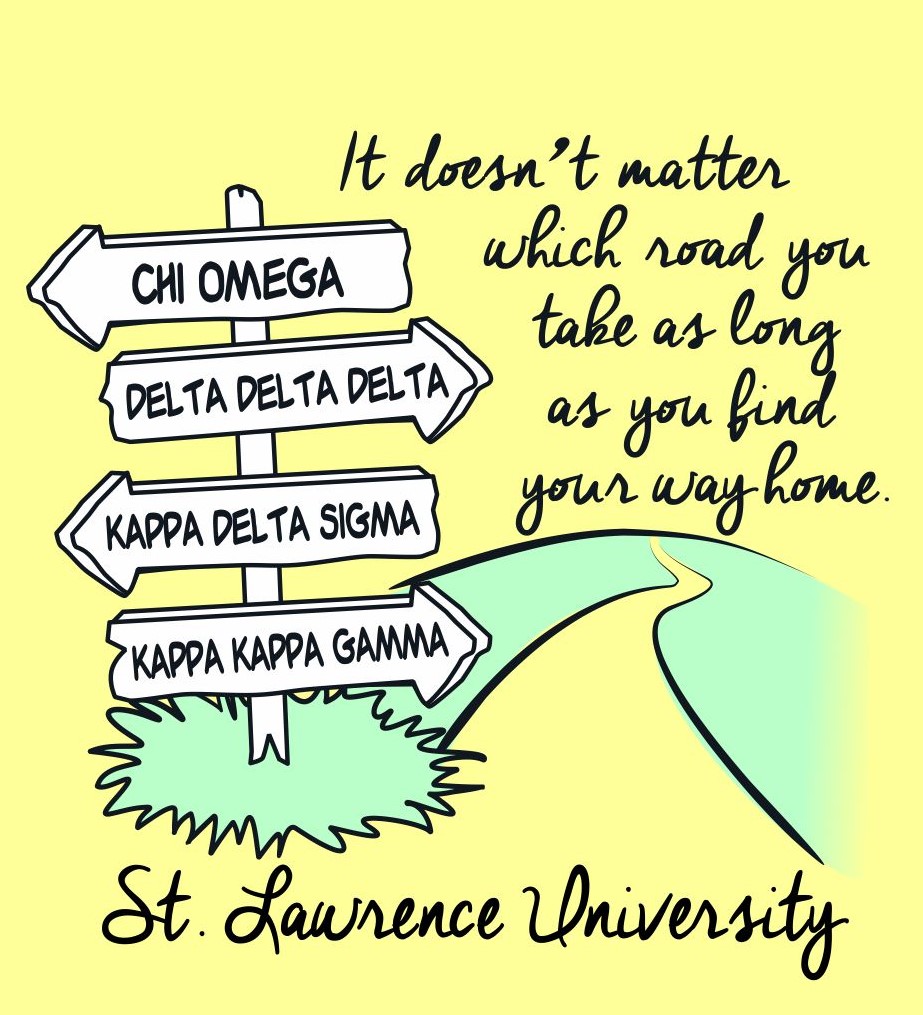 It doesn't matter
which road you
take as long
as you find
your way home.
CHI OMEGA
DELTA DELTA DELTA
KAPPA DELTA SIGMA
KAPPA KAPPA GAMMA
St. Lawrence University